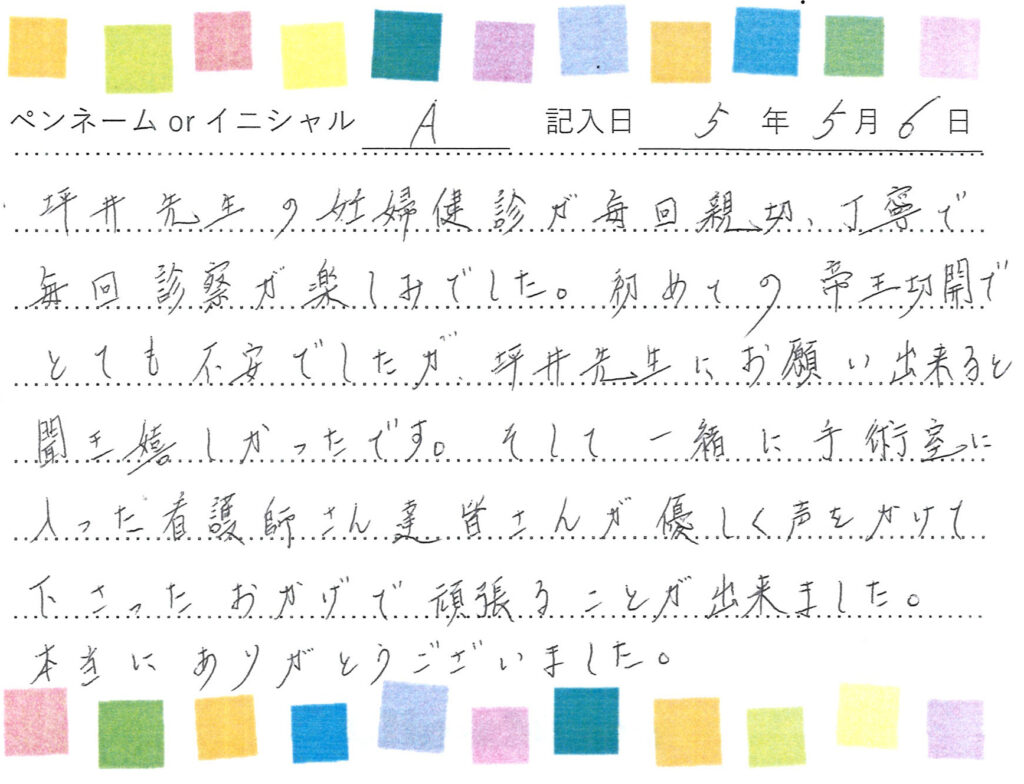 ペンネーム or イニシャル A 記入日 5 年 5 月 6 日
坪井先生の妊婦健診が毎回親切、丁寧で
毎回診察が楽しみでした。初めての帝王切開で
とても不安でしたが、坪井先生にお願い出来ると
聞き嬉しかったです。そして一緒に手術室に
入った看護師さん達皆さんが優しく声をかけて
下さったおかげで頑張ることが出来ました。
本当にありがとうございました。